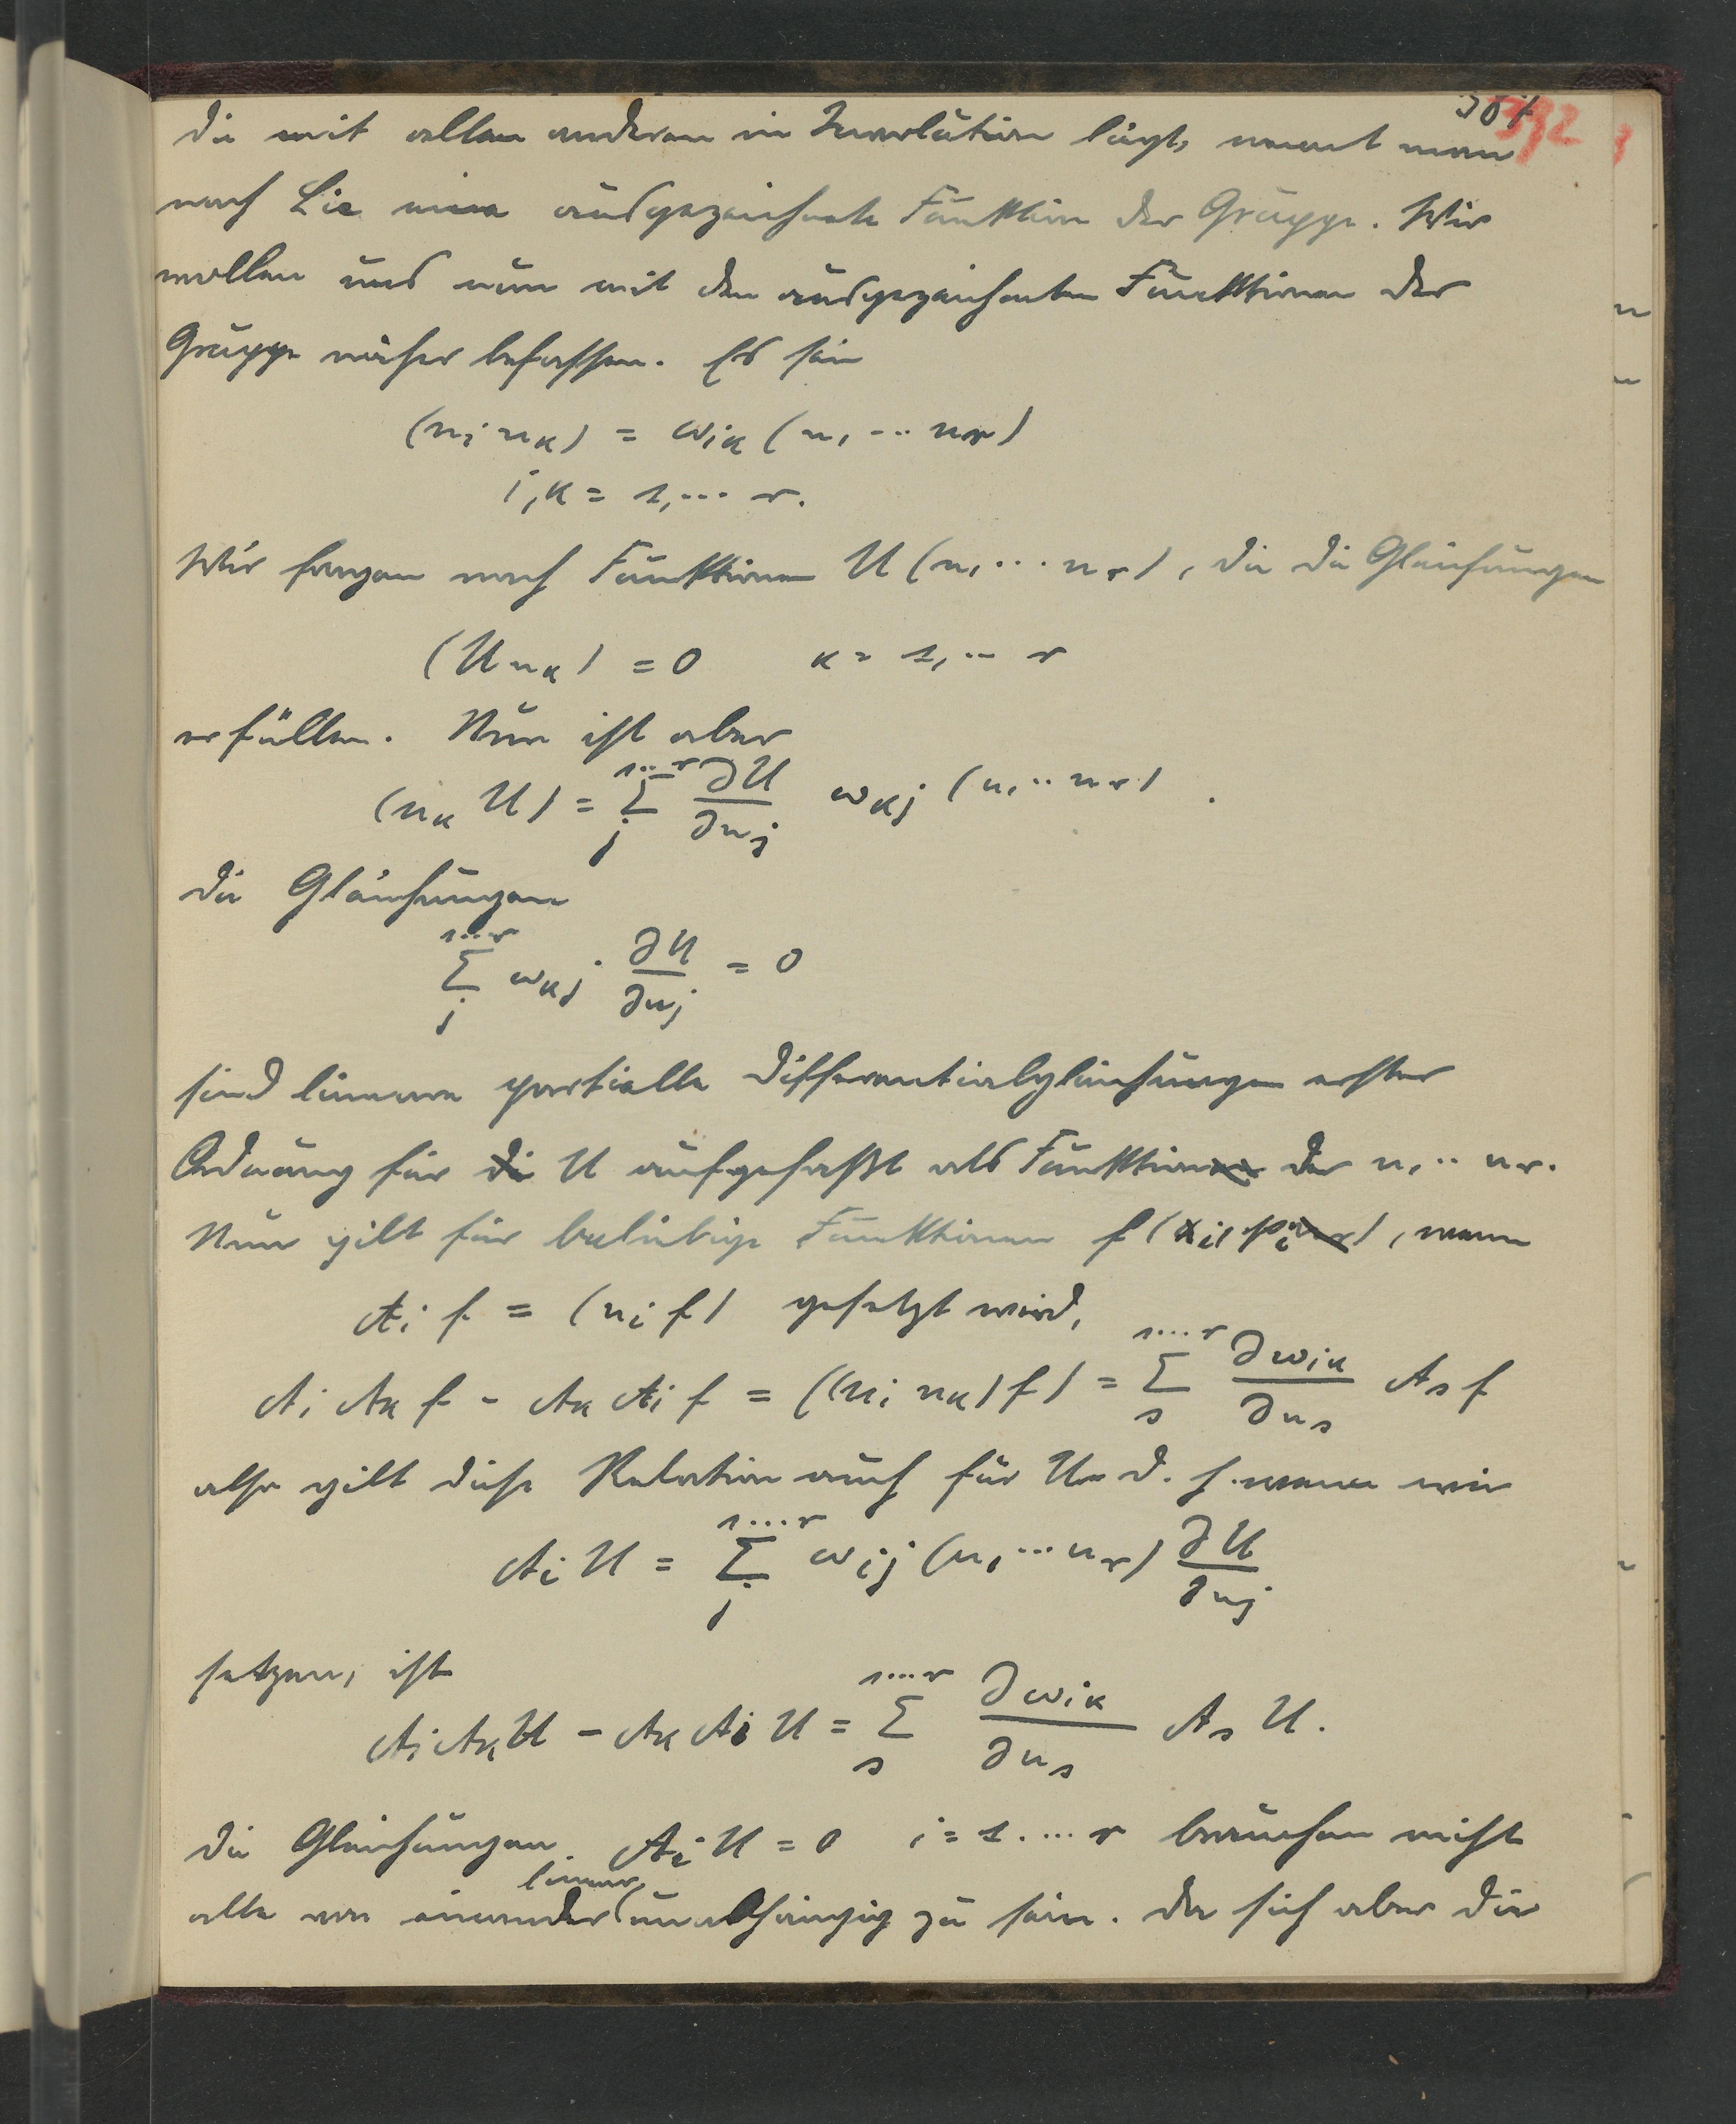 392
die mit allen anderen in Involution liegt, nennt man
nach Lie eine ausgezeichnete Funktion der Gruppe. Wir
wollen uns nun mit den ausgezeichneten Funktionen der
Gruppe näher befassen. Es sei
(u_i u_k) = ω_ik (u_1 ... u_r)
i, k = 1, ... r.
Wir fragen nach Funktionen U (u_1 ... u_r), die die Gleichungen
(U u_k) = 0 k = 1, ... r
erfüllen. Nun ist aber
(u_k U) = Σ_j^{1...r} ∂U/∂u_j ω_kj (u_1 .. u_r).
Die Gleichungen
Σ_j^{1...r} ω_kj ∂U/∂u_j = 0
sind lineare partielle Differentialgleichungen erster
Ordnung für U aufgefaßt als Funktion der u_1 .. u_r.
Nun gilt für beliebige Funktionen f (x_i, p_i), wenn
A_i f = (u_i f) gesetzt wird,
A_i A_k f - A_k A_i f = ((u_i u_k) f) = Σ_s^{1....r} ∂ω_ik/∂u_s A_s f
also gilt diese Relation auch für U. d. h. wenn wir
A_i U = Σ_j^{1....r} ω_ij (u_1 ... u_r) ∂U/∂u_j
setzen, ist
A_i A_k U - A_k A_i U = Σ_s^{1....r} ∂ω_ik/∂u_s A_s U.
Die Gleichungen A_i U = 0 i = 1 .... r brauchen nicht
alle von einander linear unabhängig zu sein. Da sich aber die